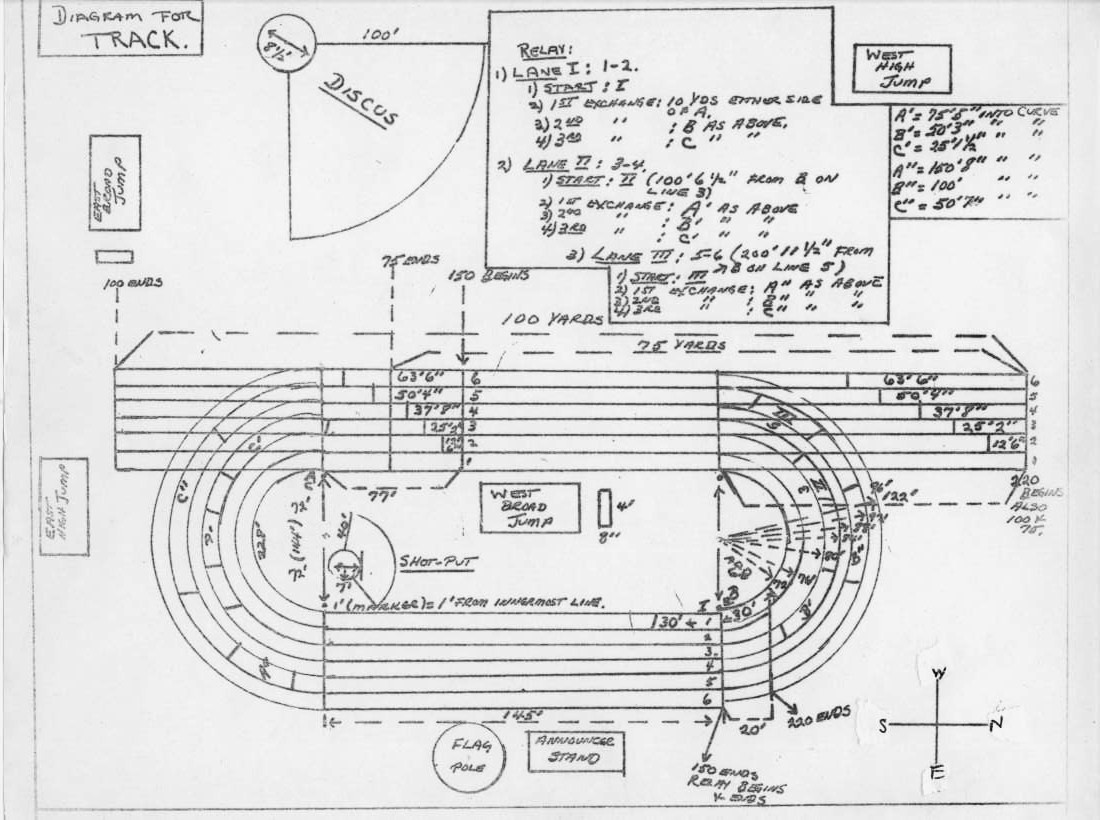 DIAGRAM FOR
TRACK.
8½'
100'
DISCUS
RELAY:
1) LANE I: 1-2.
1) START: I
2) 1ST EXCHANGE: 10 YDS EITHER SIDE
OF A.
3) 2ND " : B AS ABOVE.
4) 3RD " : C " "
2) LANE II: 3-4
1) START: II (100' 6½" FROM B ON
LINE 3)
2) 1ST EXCHANGE: A' AS ABOVE
3) 2ND " : B' " "
4) 3RD " : C' " "
3) LANE III: 5-6 (200' 11½" FROM
B ON LINE 5)
1) START: III
2) 1ST EXCHANGE: A" AS ABOVE
3) 2ND " : B" " "
4) 3RD " : C" " "
WEST
HIGH
JUMP
A' = 75'5" INTO CURVE
B' = 50'3" " "
C' = 25'1½" " "
A" = 150'8" " "
B" = 100' " "
C" = 50'7" " "
EAST
BROAD
JUMP
100 ENDS
75 ENDS
150 BEGINS
100 YARDS
75 YARDS
63'6" 6 63'6" 6
50'4" 5 50'4" 5
37'8" 4 37'8" 4
25'2" 3 25'2"
12'6" 2 12'6" 2
1
77'
122'
220
BEGINS
ALSO
100 &
75.
EAST
HIGH JUMP
WEST
BROAD
JUMP
4'
8"
C"
C'
228'
72'
(144')
72'
40'
7'
SHOT-PUT
III
II
3
72
76
B'
B
1' (MARKER) = 1' FROM INNERMOST LINE.
I
30'
130'
1
2
3.
4
5
6
145'
20'
220 ENDS
FLAG
POLE
ANNOUNCER
STAND
150 ENDS
RELAY BEGINS
& ENDS
W
S N
E